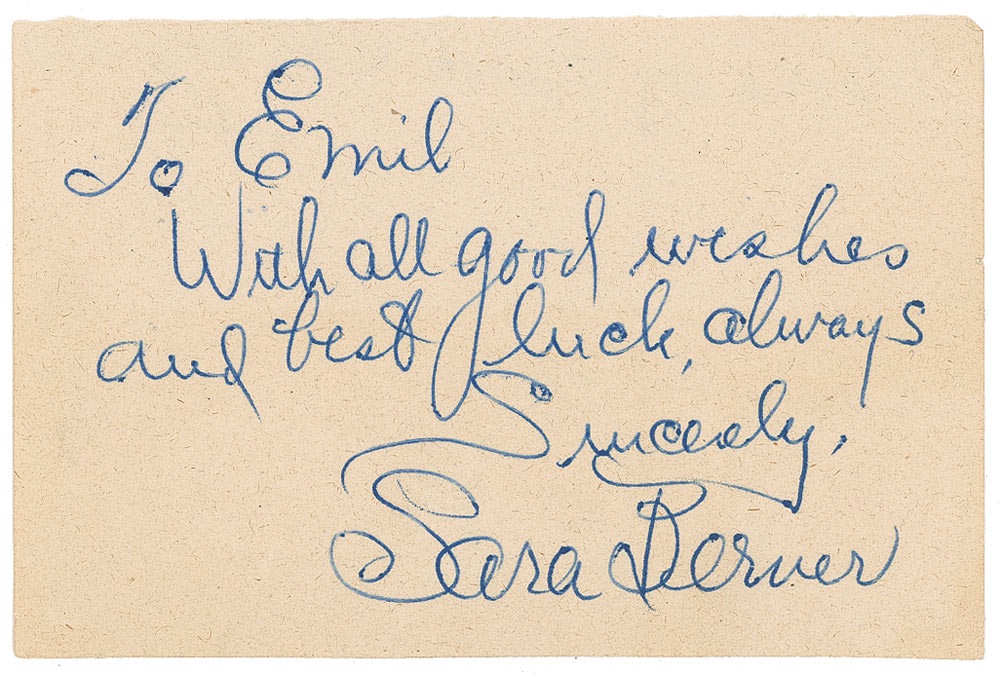 To Emil
With all good wishes
and best luck, always
Sincerely,
Sara Berner